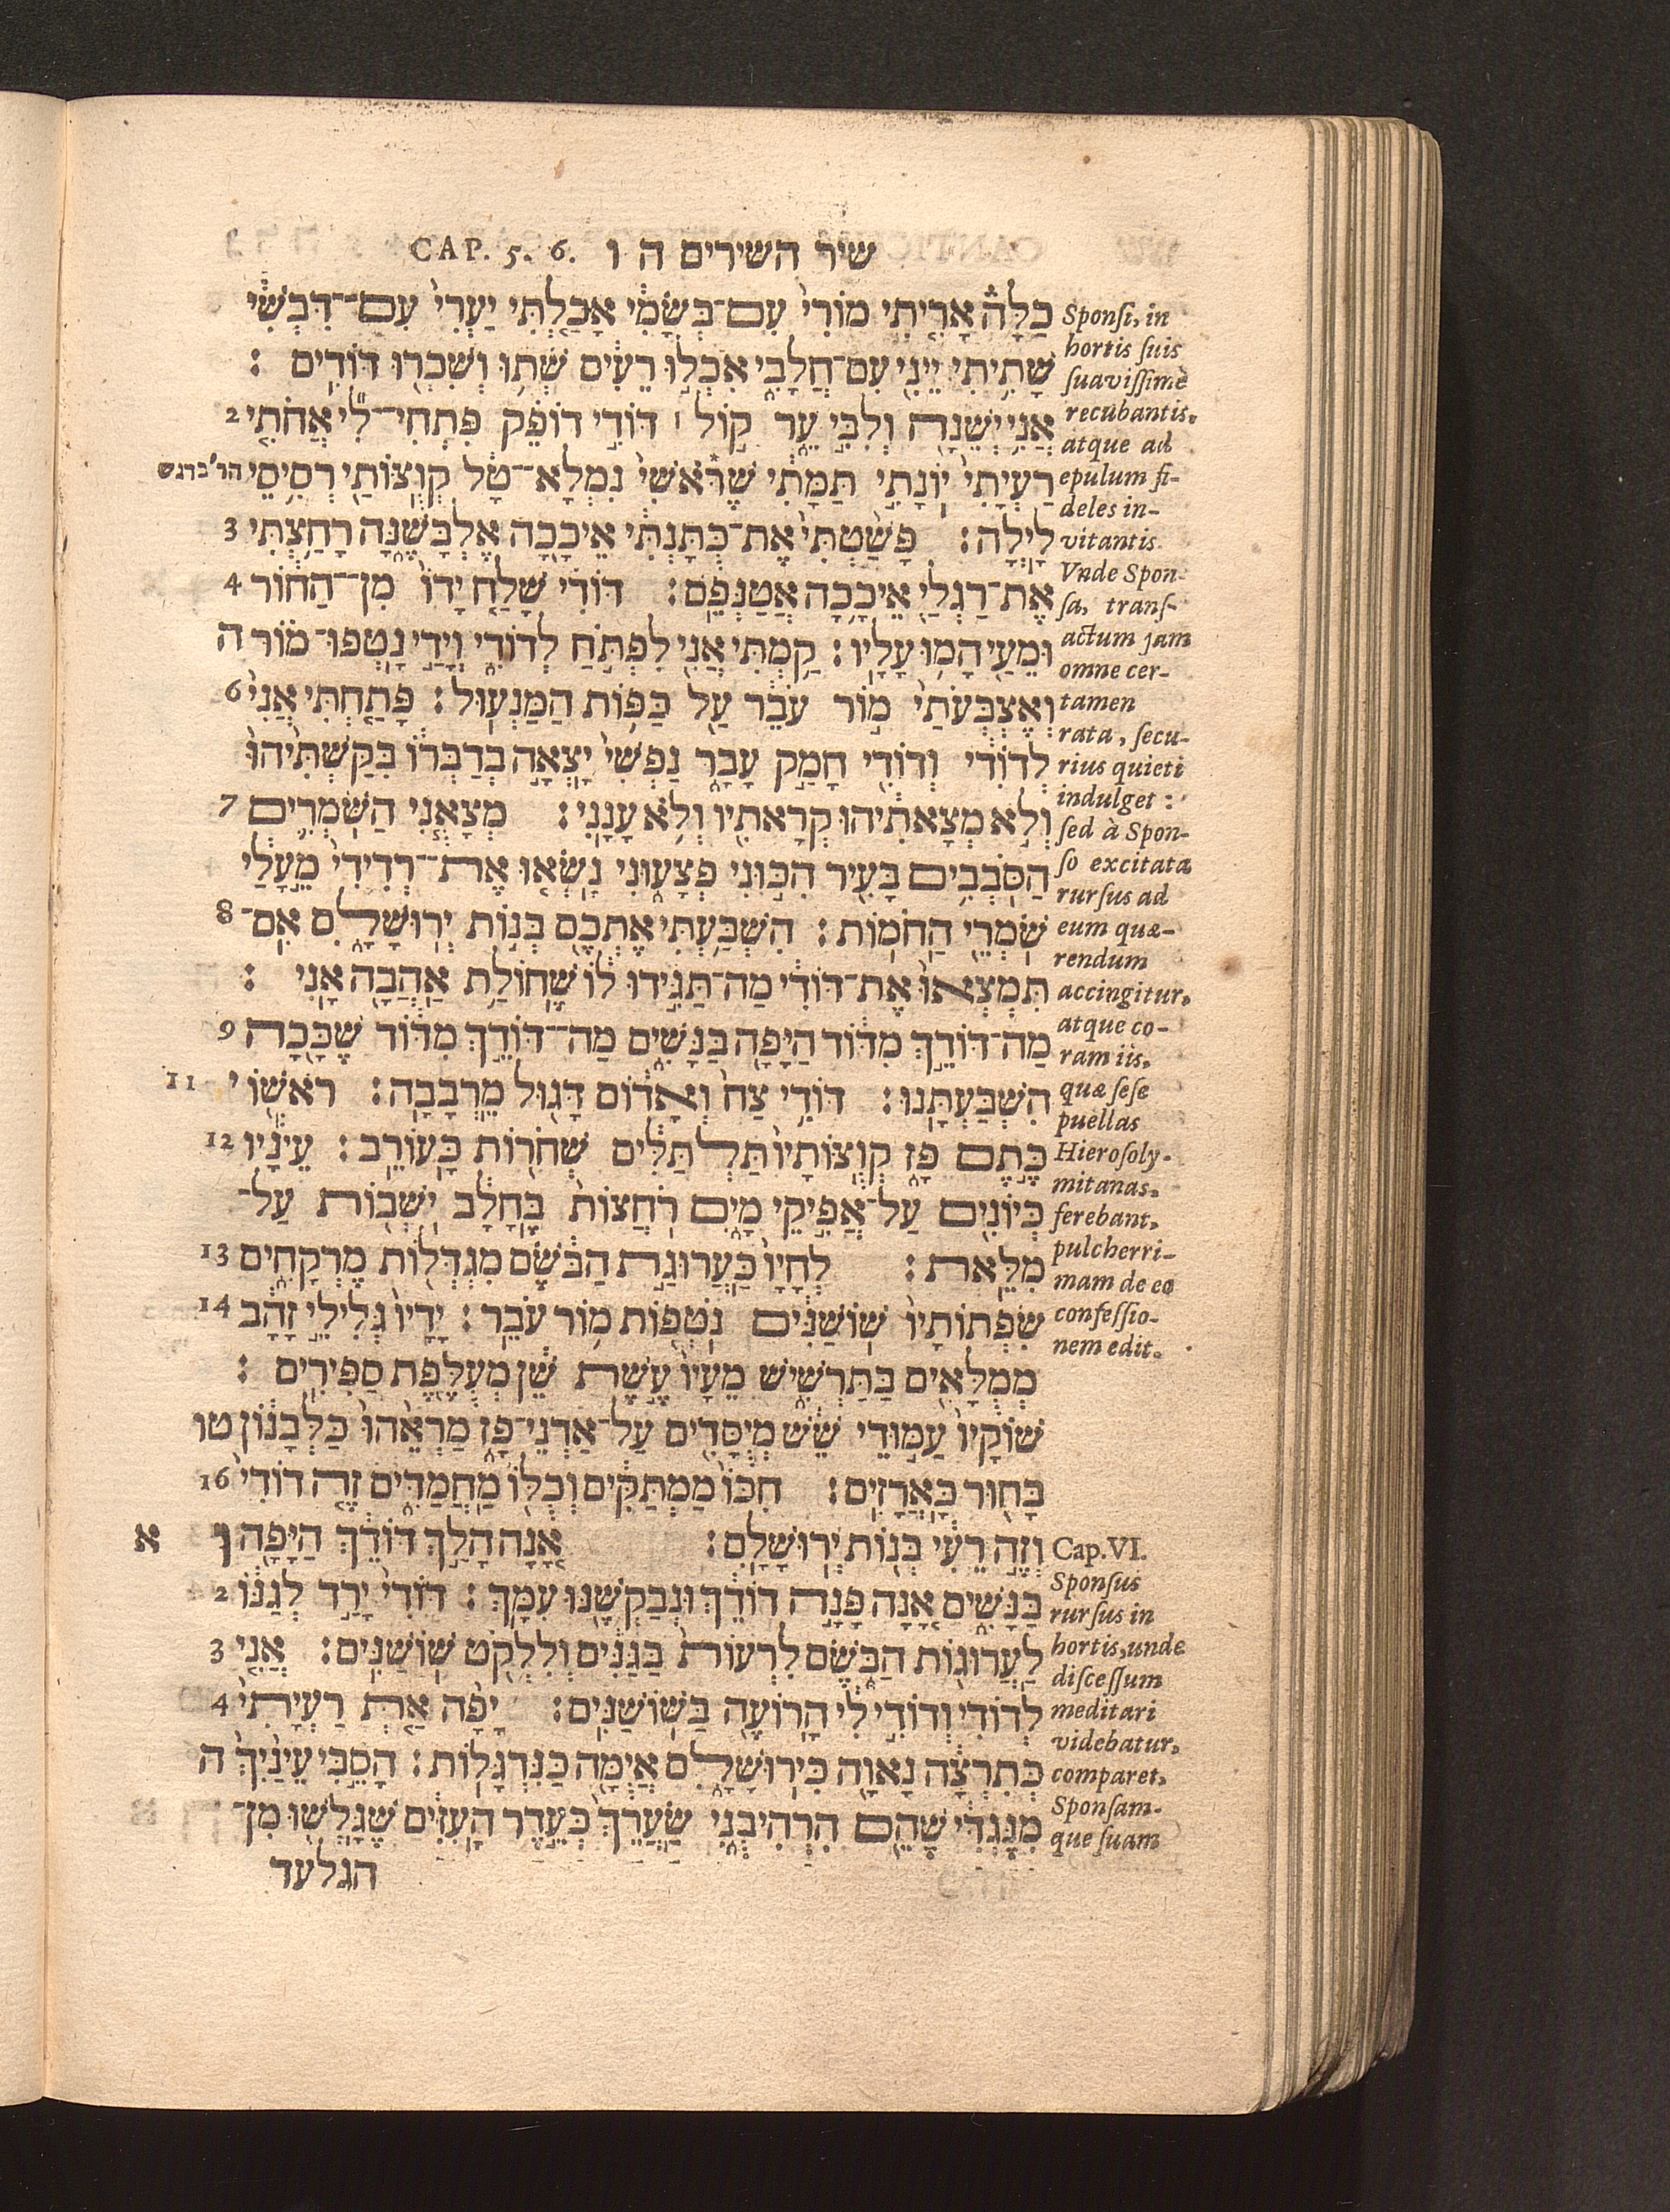 שיר השירים ה ו CAP. 5. 6.
כַּלָּה אָרִיתִי מוֹרִי עִם־בְּשָׂמִי אָכַלְתִּי יַעְרִי עִם־דִּבְשִׁי
שָׁתִיתִי יֵינִי עִם־חֲלָבִי אִכְלוּ רֵעִים שְׁתוּ וְשִׁכְרוּ דּוֹדִים׃
אֲנִי יְשֵׁנָה וְלִבִּי עֵר קוֹל ׀ דּוֹדִי דוֹפֵק פִּתְחִי־לִי אֲחֹתִי 2
רַעְיָתִי יוֹנָתִי תַמָּתִי שֶׁרֹּאשִׁי נִמְלָא־טָל קְוֻצּוֹתַי רְסִיסֵי
לָיְלָה׃ פָּשַׁטְתִּי אֶת־כֻּתָּנְתִּי אֵיכָכָה אֶלְבָּשֶׁנָּה רָחַצְתִּי 3
אֶת־רַגְלַי אֵיכָכָה אֲטַנְּפֵם׃ דּוֹדִי שָׁלַח יָדוֹ מִן־הַחוֹר 4
וּמֵעַי הָמוּ עָלָיו׃ קַמְתִּי אֲנִי לִפְתֹּחַ לְדוֹדִי וְיָדַי נָטְפוּ־מוֹר ה
וְאֶצְבְּעֹתַי מוֹר עֹבֵר עַל כַּפּוֹת הַמַּנְעוּל׃ פָּתַחְתִּי אֲנִי 6
לְדוֹדִי וְדוֹדִי חָמַק עָבָר נַפְשִׁי יָצְאָה בְדַבְּרוֹ בִּקַּשְׁתִּיהוּ
וְלֹא מְצָאתִיהוּ קְרָאתִיו וְלֹא עָנָנִי׃ מְצָאֻנִי הַשֹּׁמְרִים 7
הַסֹּבְבִים בָּעִיר הִכּוּנִי פְצָעוּנִי נָשְׂאוּ אֶת־רְדִידִי מֵעָלַי
שֹׁמְרֵי הַחֹמוֹת׃ הִשְׁבַּעְתִּי אֶתְכֶם בְּנוֹת יְרוּשָׁלִָם אִם־ 8
תִּמְצְאוּ אֶת־דּוֹדִי מַה־תַּגִּידוּ לוֹ שֶׁחוֹלַת אַהֲבָה אָנִי׃
מַה־דּוֹדֵךְ מִדּוֹד הַיָּפָה בַּנָּשִׁים מַה־דּוֹדֵךְ מִדּוֹד שֶׁכָּכָה 9
הִשְׁבַּעְתָּנוּ׃ דּוֹדִי צַח וְאָדוֹם דָּגוּל מֵרְבָבָה׃ רֹאשׁוֹ י 11
כֶּתֶם פָּז קְוֻצּוֹתָיו תַּלְתַּלִּים שְׁחֹרוֹת כָּעוֹרֵב׃ עֵינָיו 12
כְּיוֹנִים עַל־אֲפִיקֵי מָיִם רֹחֲצוֹת בֶּחָלָב יֹשְׁבוֹת עַל־
מִלֵּאת׃ לְחָיָו כַּעֲרוּגַת הַבֹּשֶׂם מִגְדְּלוֹת מֶרְקָחִים 13
שִׂפְתוֹתָיו שׁוֹשַׁנִּים נֹטְפוֹת מוֹר עֹבֵר׃ יָדָיו גְּלִילֵי זָהָב 14
מְמֻלָּאִים בַּתַּרְשִׁישׁ מֵעָיו עֶשֶׁת שֵׁן מְעֻלֶּפֶת סַפִּירִים׃
שׁוֹקָיו עַמּוּדֵי שֵׁשׁ מְיֻסָּדִים עַל־אַדְנֵי־פָז מַרְאֵהוּ כַּלְּבָנוֹן טו
בָּחוּר כָּאֲרָזִים׃ חִכּוֹ מַמְתַקִּים וְכֻלּוֹ מַחֲמַדִּים זֶה דוֹדִי 16
וְזֶה רֵעִי בְּנוֹת יְרוּשָׁלִָם׃ אָנָה הָלַךְ דּוֹדֵךְ הַיָּפָה ו א
בַּנָּשִׁים אָנָה פָּנָה דוֹדֵךְ וּנְבַקְשֶׁנּוּ עִמָּךְ׃ דּוֹדִי יָרַד לְגַנּוֹ 2
לַעֲרוּגוֹת הַבֹּשֶׂם לִרְעוֹת בַּגַּנִּים וְלִלְקֹט שׁוֹשַׁנִּים׃ אֲנִי 3
לְדוֹדִי וְדוֹדִי לִי הָרוֹעֶה בַּשּׁוֹשַׁנִּים׃ יָפָה אַתְּ רַעְיָתִי 4
כְּתִרְצָה נָאוָה כִּירוּשָׁלִָם אֲיֻמָּה כַּנִּדְגָּלוֹת׃ הָסֵבִּי עֵינַיִךְ ה
מִנֶּגְדִּי שֶׁהֵם הִרְהִיבֻנִי שַׂעְרֵךְ כְּעֵדֶר הָעִזִּים שֶׁגָּלְשׁוּ מִן־
הגלעד
Sponsi, in
hortis suis
suavissimè
recubantis,
atque ad
epulum fi-
deles in-
vitantis.
Vnde Spon-
sa, trans-
actum jam
omne cer-
tamen
rata, secu-
rius quieti
indulget:
sed à Spon-
so excitata
rursus ad
eum quæ-
rendum
accingitur,
atque co-
ram iis,
quæ sese
puellas
Hierosoly-
mitanas,
ferebant,
pulcherri-
mam de eo
confessio-
nem edit.
Cap. VI.
Sponsus
rursus in
hortis, unde
discessum
meditari
videbatur,
comparet,
Sponsam-
que suam